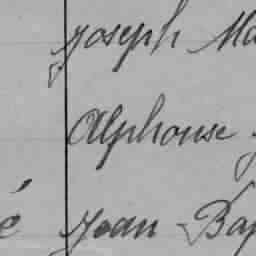 Joseph Ma
Alphonse
é Jean Bap